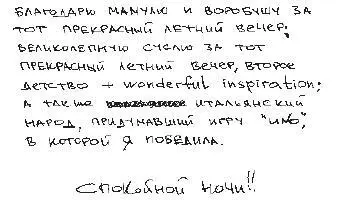 БЛАГОДАРЮ МАМУЛЮ И ВОРОБУШУ ЗА
ТОТ ПРЕКРАСНЫЙ ЛЕТНИЙ ВЕЧЕР,
ВЕЛИКОЛЕПНУЮ СУСЛЮ ЗА ТОТ
ПРЕКРАСНЫЙ ЛЕТНИЙ ВЕЧЕР, ВТОРОЕ
ДЕТСТВО + wonderful inspiration;
А ТАКЖЕ ИТАЛЬЯНСКИЙ
НАРОД, ПРИДУМАВШИЙ ИГРУ
В КОТОРОЙ Я ПОБЕДИЛА.
СПОКОЙНОЙ НОЧИ!!